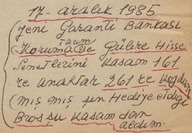 17- aralık 1985
Yeni Garanti Bankası
Korumalı Gülüre Hisse
Senetlerini Kasam 161
ve anahtar 261 ve
mış mış şen Hediye etdiği
Broşsu Kasamdan
aldım.